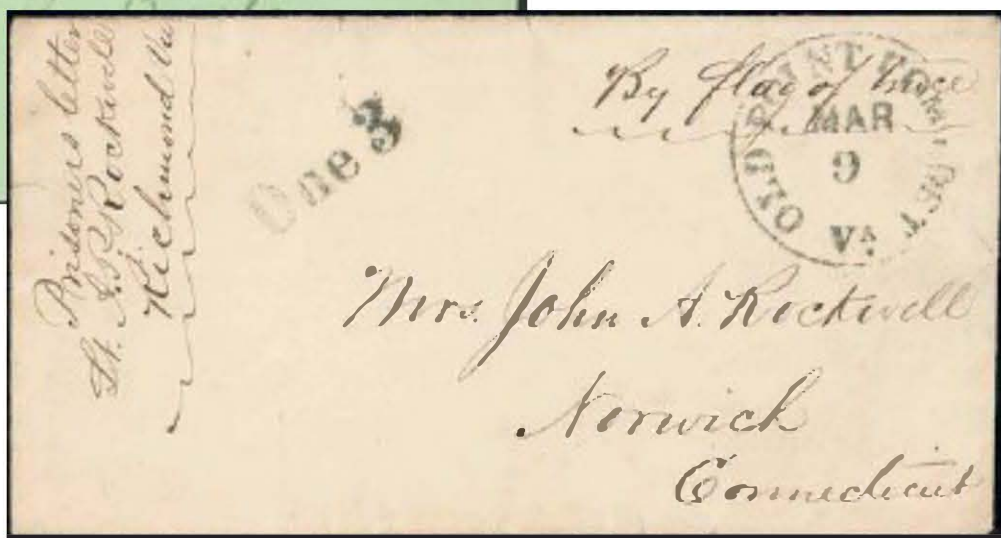 Prisoners letter
Lt. A.P. Rockwell
Richmond Va
One 3
By flag of truce
OLD POINT COMFORT
MAR
9
VA
Mrs. John A. Rockwell
Norwich
Connecticut